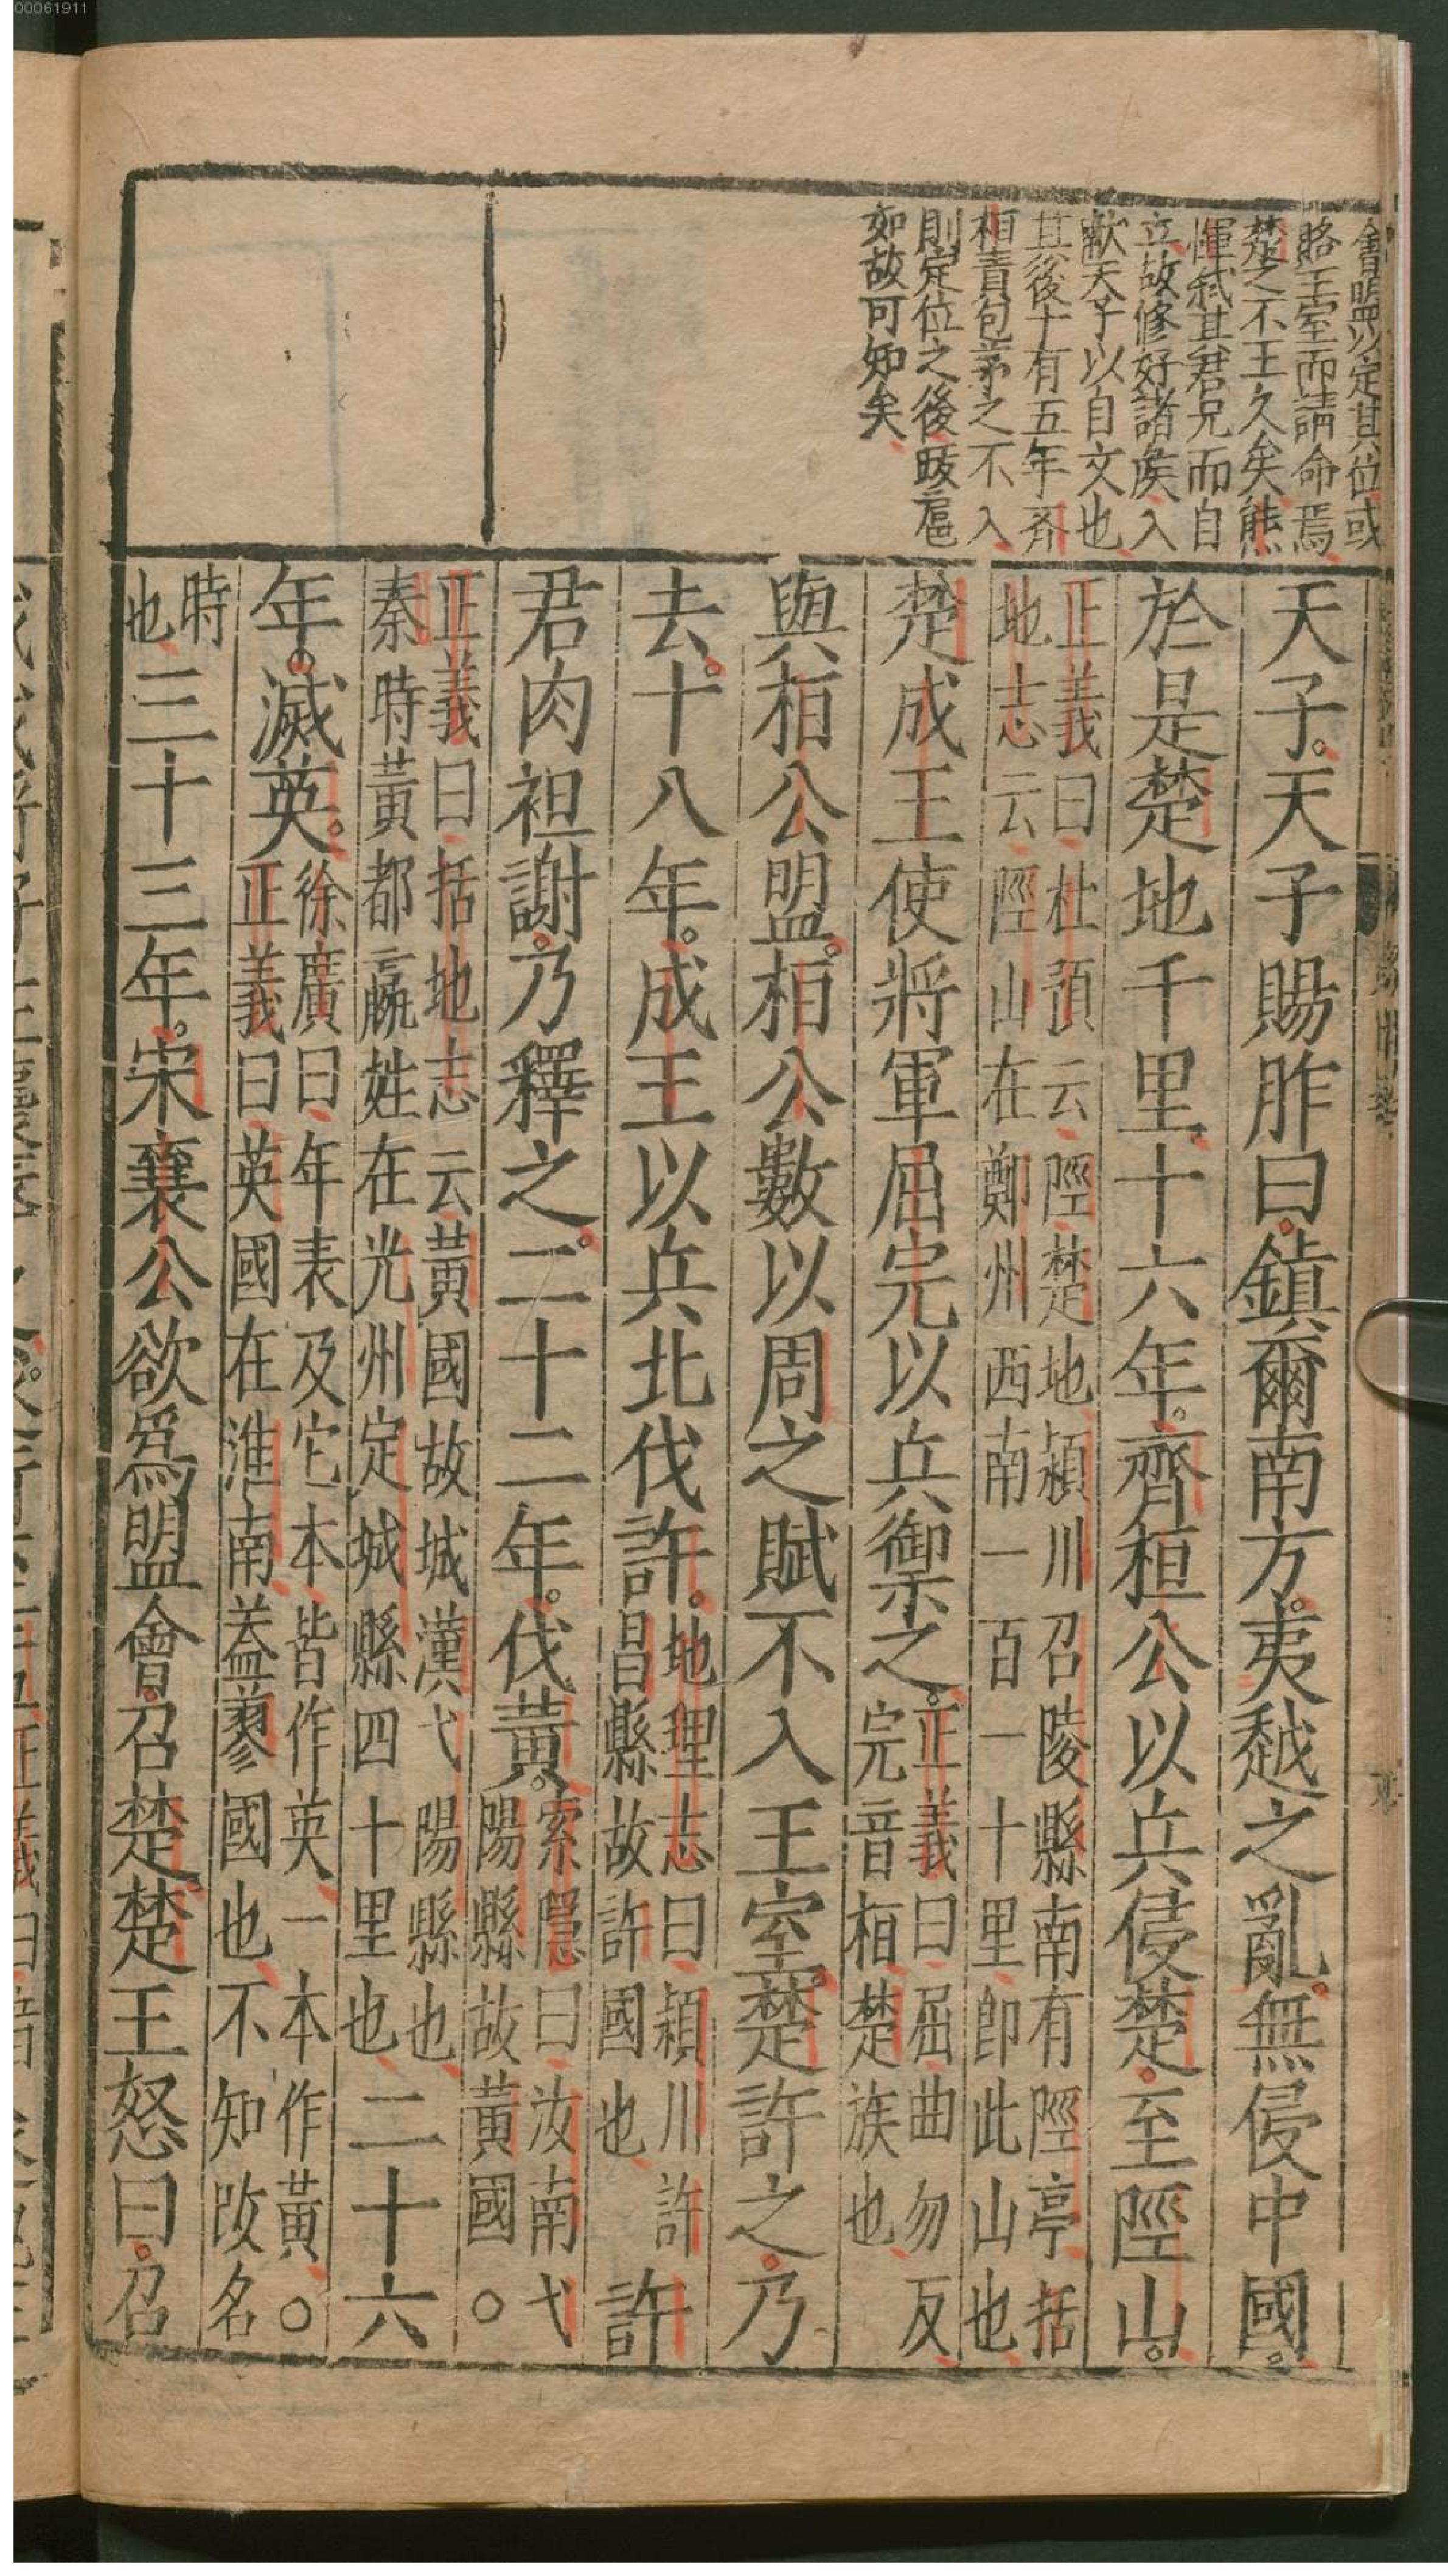 00061911
會盟以定其位或
賂王室而請命焉
楚之不王久矣熊
惲弒其君兄而自
立故修好諸侯入
獻天子以自文也
其後十有五年齊
桓責包茅之不入
則定位之後跋扈
如故可知矣
天子。天子賜胙曰。鎮爾南方。夷越之亂。無侵中國。
於是楚地千里。十六年。齊桓公以兵侵楚。至陘山。
正義曰杜預云陘楚地潁川召陵縣南有陘亭括
地志云陘山在鄭州西南一百一十里即此山也
楚成王使將軍屈完以兵禦之。
正義曰屈曲勿反
完音桓楚族也
與桓公盟。桓公數以周之賦不入王室。楚許之。乃
去。十八年。成王以兵北伐許。
地理志曰潁川許
昌縣故許國也
許
君肉袒謝。乃釋之。二十二年。伐黃。
索隱曰汝南弋
陽縣故黃國○
正義曰括地志云黃國故城漢弋陽縣也
秦時黃都嬴姓在光州定城縣四十里也
二十六
年。滅英。
徐廣曰年表及它本皆作英一本作黃○
正義曰英國在淮南蓋蓼國也不知改名
時
也
三十三年。宋襄公欲爲盟會。召楚。楚王怒曰。召